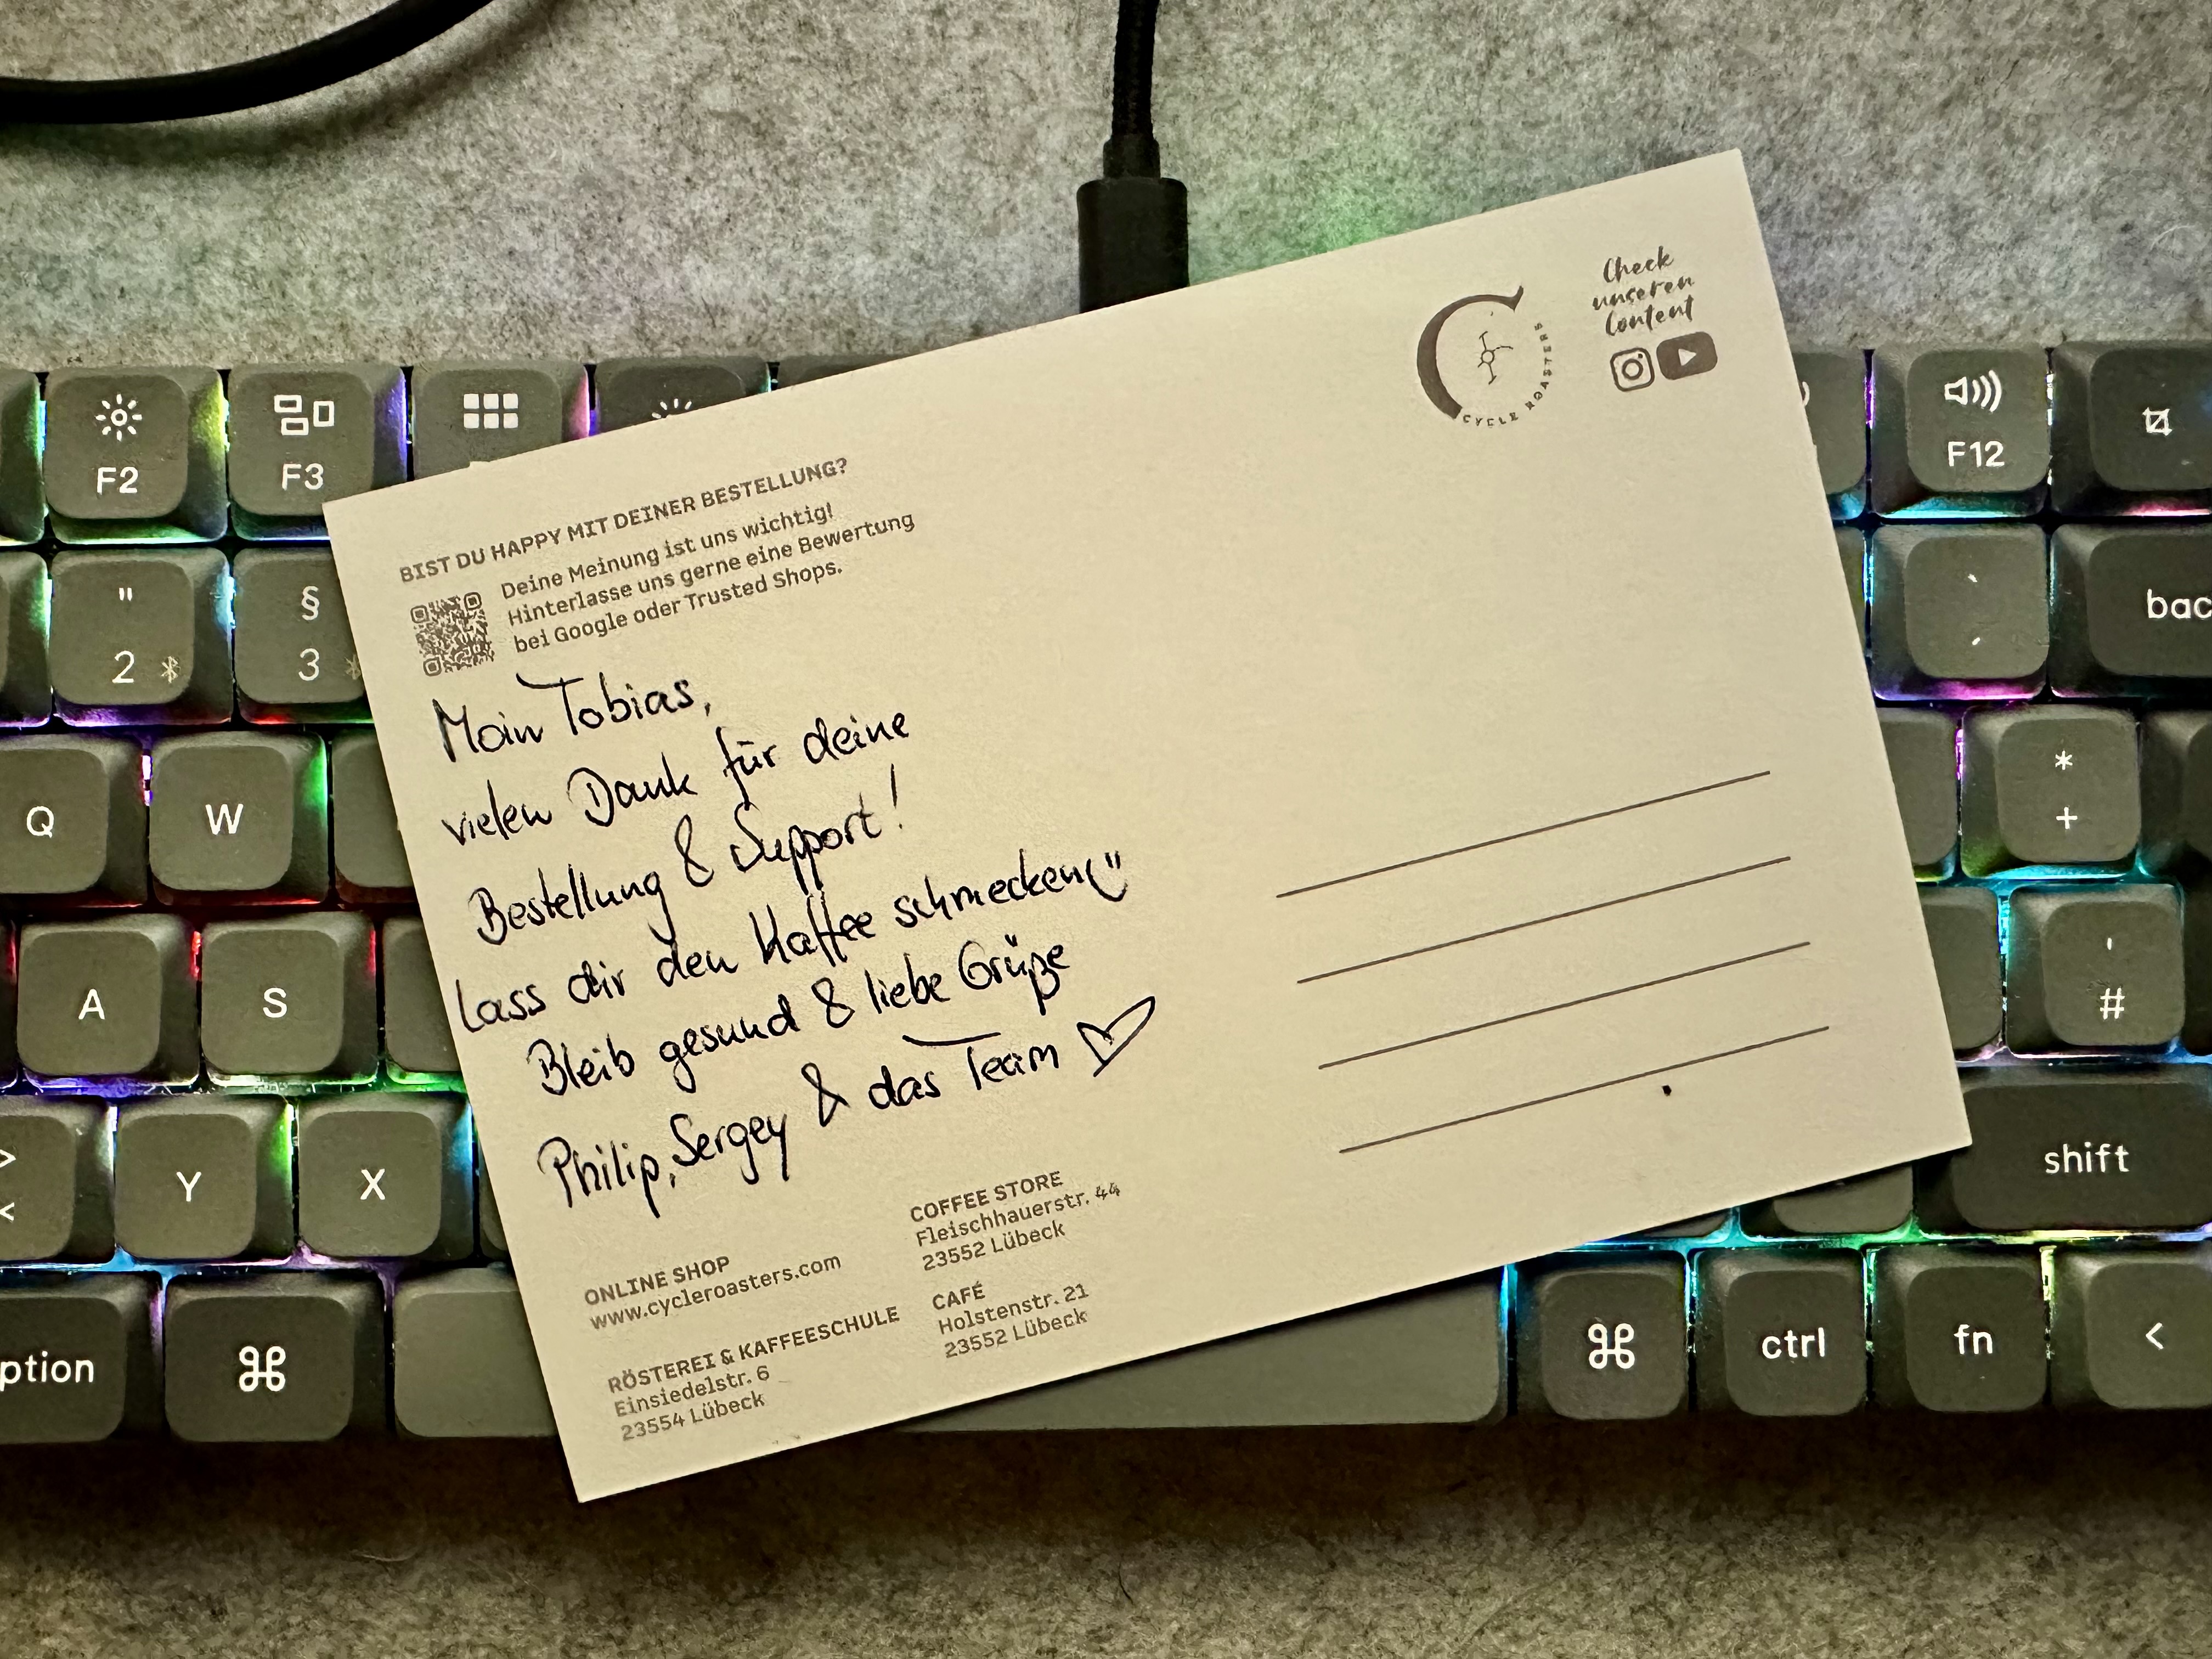 BIST DU HAPPY MIT DEINER BESTELLUNG?
Deine Meinung ist uns wichtig!
Hinterlasse uns gerne eine Bewertung
bei Google oder Trusted Shops.
CYCLE ROASTERS
Check
unseren
Content
Moin Tobias,
vielen Dank für deine
Bestellung & Support!
Lass dir den Kaffee schmecken
Bleib gesund & liebe Grüße
Philip, Sergey & das Team ♡
ONLINE SHOP
www.cycleroasters.com
RÖSTEREI & KAFFEESCHULE
Einsiedelstr. 6
23554 Lübeck
COFFEE STORE
Fleischhauerstr. 44
23552 Lübeck
CAFÉ
Holstenstr. 21
23552 Lübeck
F2
F3
F12
"
2
§
3
`
´
bac
Q
W
*
+
A
S
'
#
>
<
Y
X
shift
ption
⌘
⌘
ctrl
fn
<